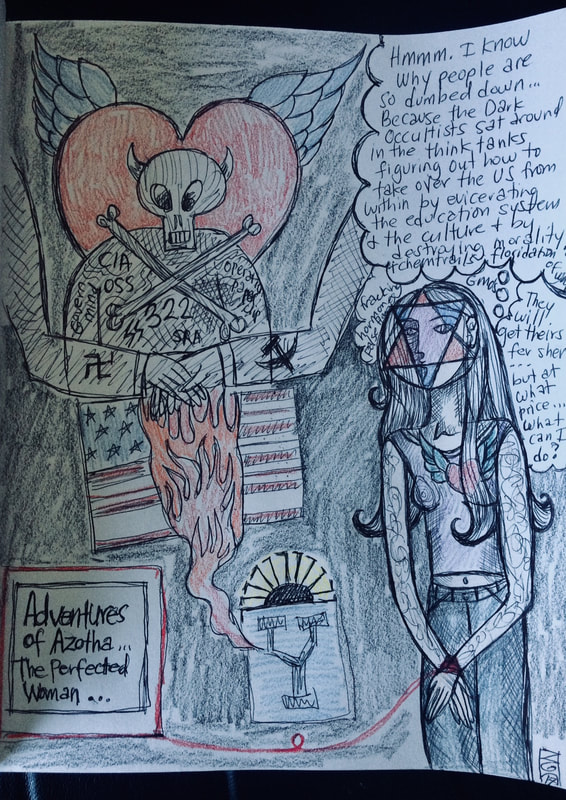 Hmmm. I know
why people are
so dumbed down...
Because the Dark
Occultists sat around
in the think tanks
figuring out how to
take over the US from
within by evicerating
the education system
& the culture & by
destroying morality
chemtrails floridation of
GMOs
fracking
They
will
get theirs
fer sher
...
but at
what
price...
what
can I
do?
CIA
OSS
322
SRA
Operation
Adventures
of Azotha...
The Perfected
Woman...